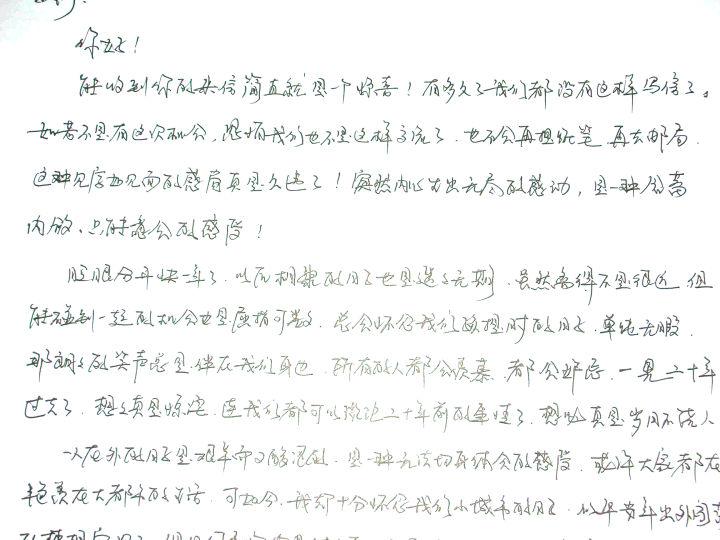 你好！
能收到你的来信简直就是一个惊喜！有多久了我们都没有这样写信了。
如若不是有这次机会，恐怕我们也不是这样交流了，也不会再提纸笔，再去邮局，
这种见字如见面的感觉真是久违了！突然内心发出无尽的感动，是一种含蓄
内敛、只能意会的感受！
眨眼分开快一年了，以后相聚的日子也是遥遥无期，虽然离得不是很远，但
能碰到一起的机会也是屈指可数，总会怀念我们被捏时的日子，单纯无暇，
那朗朗的笑声总是伴在我们身边，所有的人都会羡慕，都会妒忌，一晃二十年
过去了，想想真是惊诧，连我们都可以谈论二十年前的事情了，想必真是岁月不饶人
一人在外的日子是艰辛而又酸涩的，是一种无法切身体会的感受，或许大家都在
羡慕在大都市的生活，可如今，我却十分怀念我们小城市的日子，